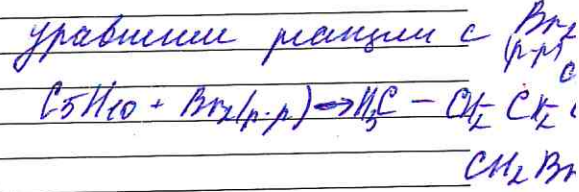 уравнение реакции с Br₂
(р-р)
C5H10 + Br₂(р-р) → H₃C - CH₂ - CH₂
CH₂Br